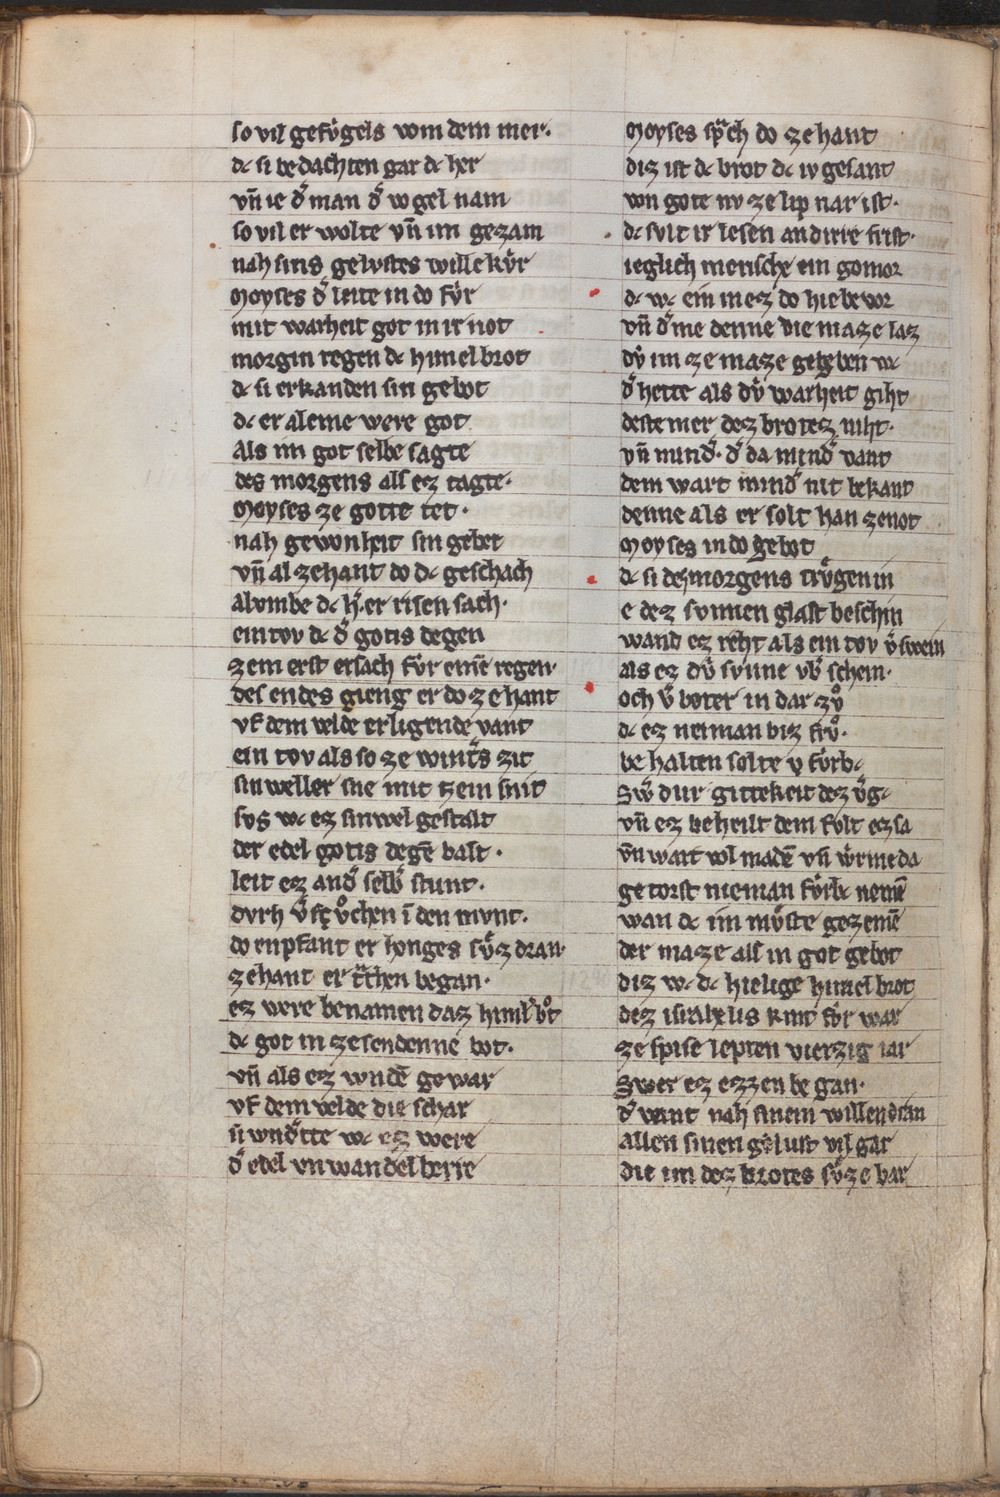 so vil gefu̍gels vom dem mer·
dc si be dachten gar dc her
vn̄ ie d͛ man d͛ vogel nam
so vil er wolte vn̄ im gezam
nah sins gelvstes wille ku̍r
Moyses d͛ seite in do fu̍r
mit warheit got in ir not
morgin regen dc himel brot
dc si erkanden sin gebot
dc er aleine were got
Als im got selbe sagte
des morgens als ez tagte·
Moyses ze gotte tet·
nah gewonheit sin gebet
vn̄ al zehant do dc geschach
alvmbe dc h͛ er risen sach·
ein tov dc d͛ gotis degen
zem erst ersach fu̍r einē regen·
des endes gieng er do zehant
vf dem velde er ligende vant
ein tov als so ze wint͛s zit
sin weller sne mit
svs wc ez sinwel gestalt
der edel gotis degē balt·
leit ez and͛ selb͛ stunt·
dvrh v͛sůchen ī den mvnt·
do enpfant er honges su̍z dran·
zehant er tͣhten began·
ez were benamen daz himilbͦt
dc got in ze sendenne bot·
vn̄ als ez wndē gewar
vf dem velde die schar
si wnd͛tte wc ez were
d͛ edel vnwandelberre
Moyses spͣch do zehant
diz ist dc brot dc iv gesant
von gote nv ze lip nar ist·
dc svlt ir lesen an dirre frist·
ieglich mensche ein gomor
dc wc ein mez do hie bevor
vn̄ d͛ me denne die maze laz
du̍ im ze maze gegeben wc
d͛ hette als du̍ warheit giht
deste mer dez brotez niht·
vn̄ mind͛· d͛ da mind͛ vant
dem wart mind͛ nit bekant
denne als er solt han ze not
Moyses in do gebot
dc si dez morgens tru̍gen in
e dez svnnen glast beschin
wand ez reht als ein tov v͛swein
als ez du̍ svnne vb͛ schein·
och v͛boter in dar zů
dc ez neiman biz frů·
be halten solte v fu̍rbc
Sw͛ dur gittekeit dez v͛gc
vn̄ ez beheilt dem fvlt ez sa
vn̄ wart vol madē vn̄ wrme da
getorst nieman fu̍rbc nemē
wan dc im mu̍ste gesemē
der maze als in got gebot
diz wc dc hielige himel brot
dez israhelis kint fu̍r war
ze spise lepten vierzig iar
Swer ez ezzen be gan·
d͛ vant nah sinem willen dran
allen sinen gelust vil gar
die im dez brotes su̍ze bar